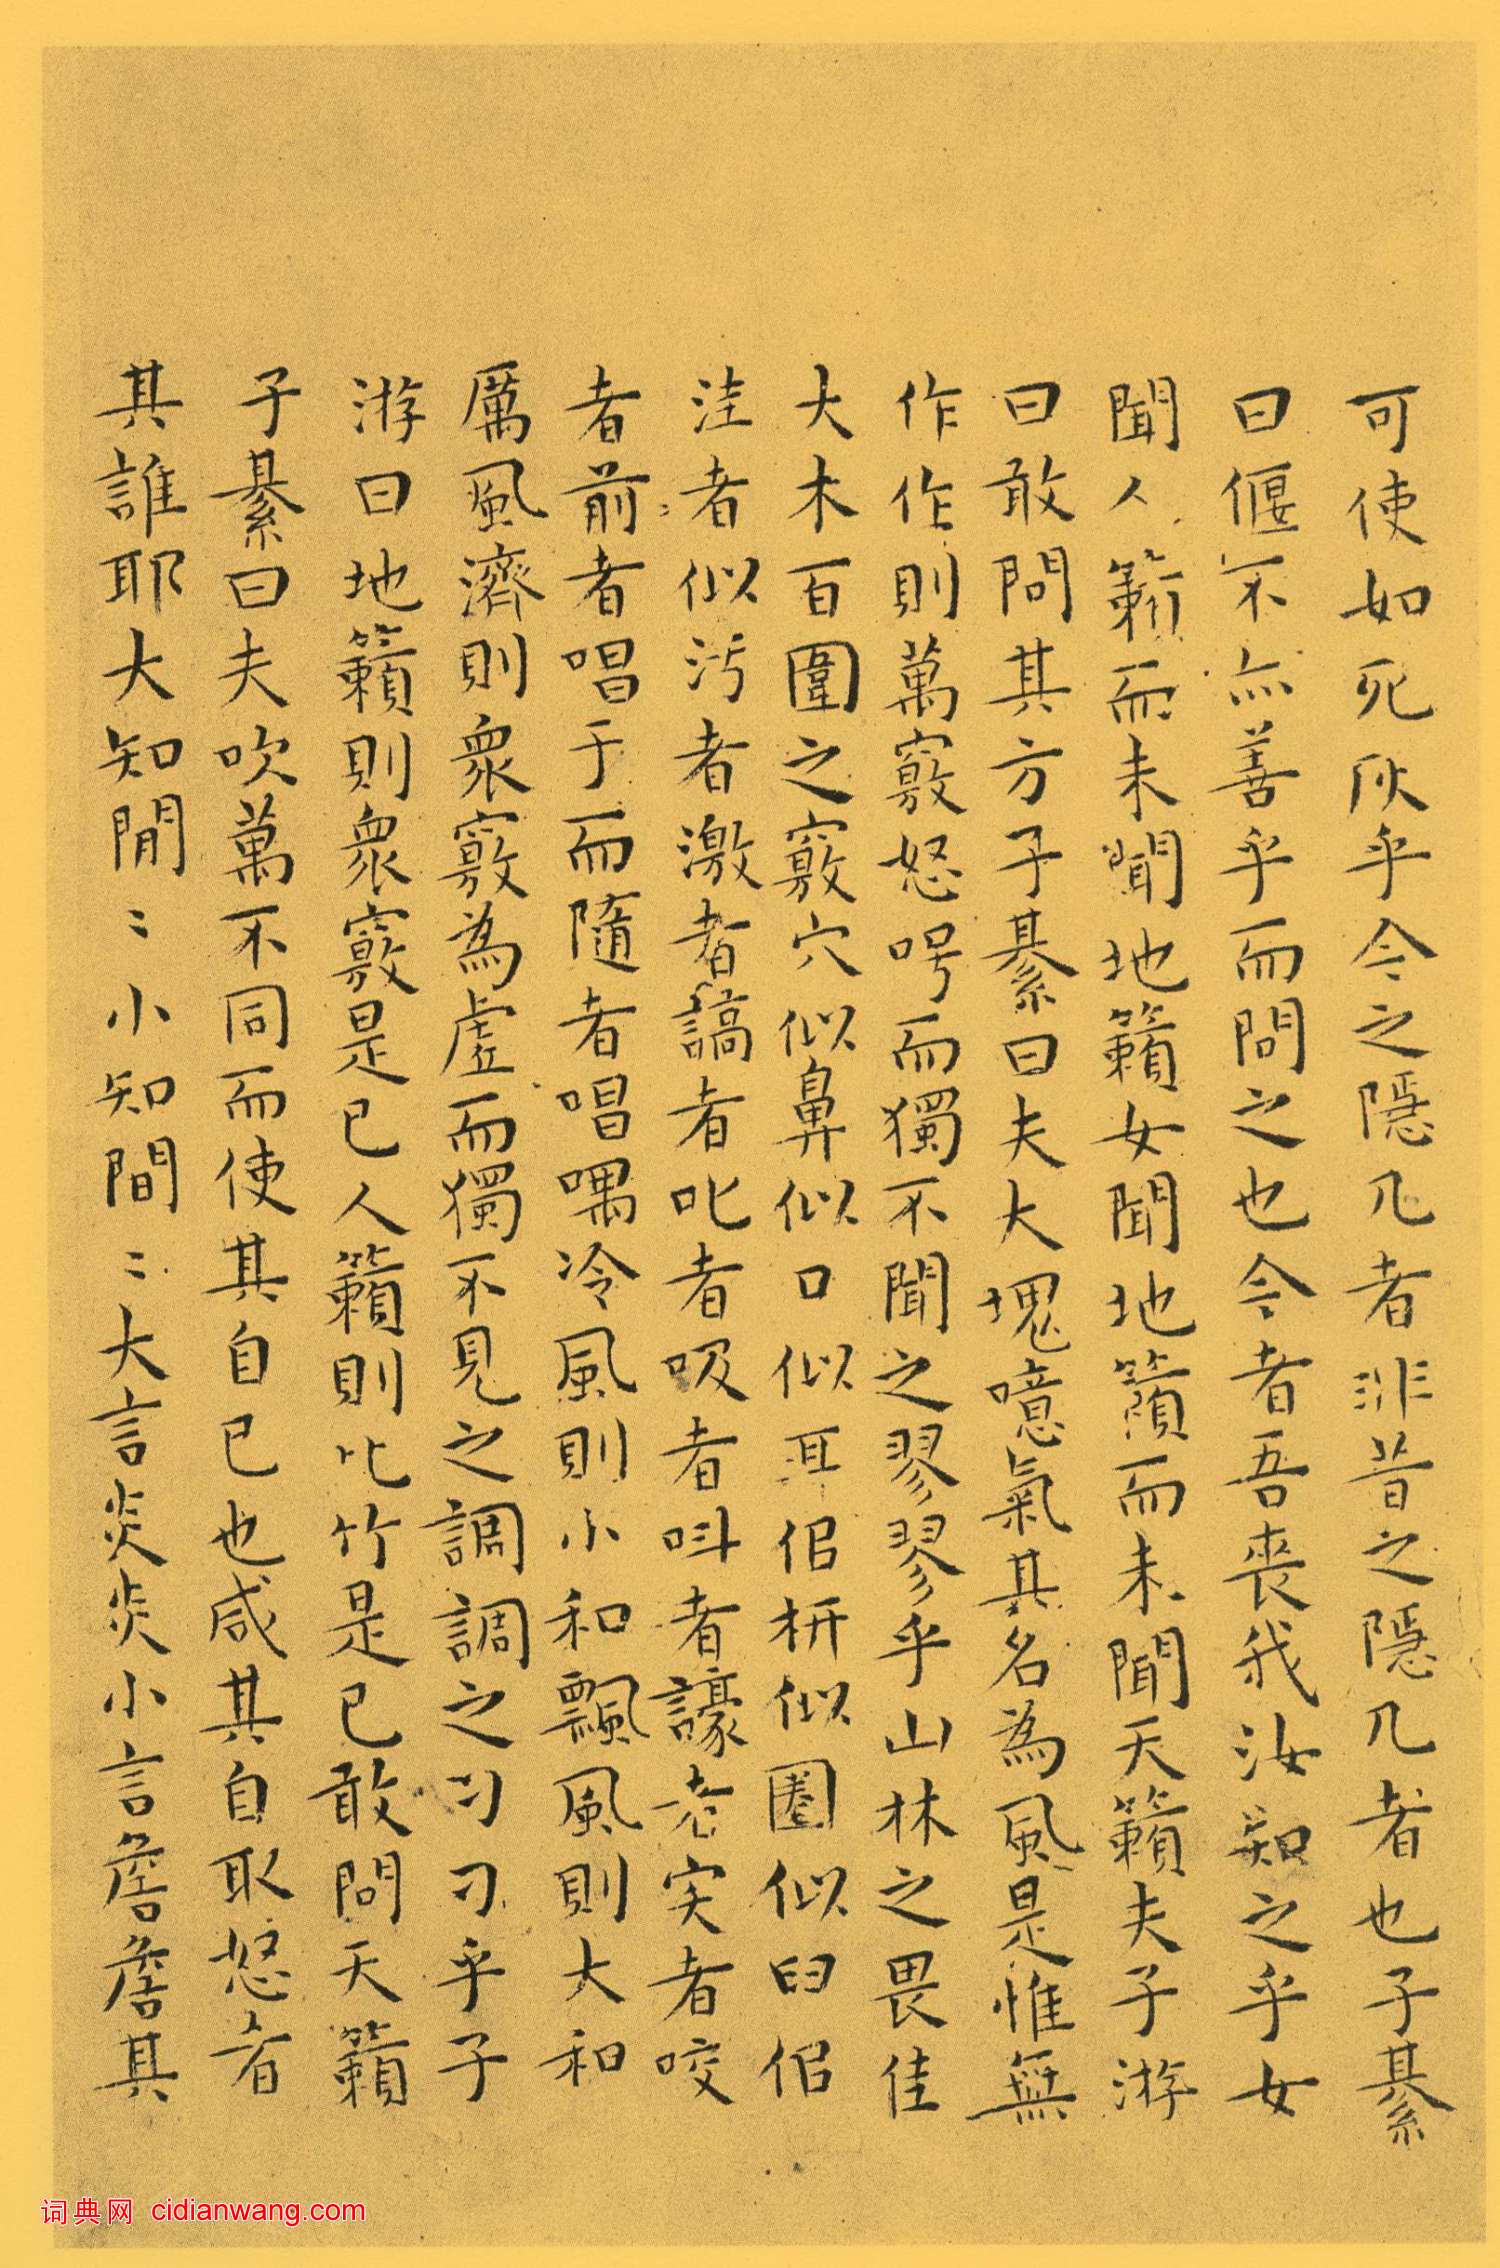 可使如死灰乎今之隱几者非昔之隱几者也子綦
曰偃不亦善乎而問之也今者吾喪我汝知之乎女
聞人籟而未聞地籟女聞地籟而未聞天籟夫子游
曰敢問其方子綦曰夫大塊噫氣其名為風是惟無
作作則萬竅怒呺而獨不聞之翏翏乎山林之畏佳
大木百圍之竅穴似鼻似口似洱侣枅似圈似臼侣
洼者似污者激者謞者叱者吸者叫者譹者宎者咬
者前者唱于而隨者唱喁冷風則小和飄風則大和
厲風濟則衆竅為虛而獨不見之調調之刁刁乎子
游曰地籟則衆竅是已人籟則比竹是已敢問天籟
子綦曰夫吹萬不同而使其自已也咸其自取怒者
其誰耶大知閒〻小知間〻大言炎炎小言詹詹其
词典网 cidianwang.com